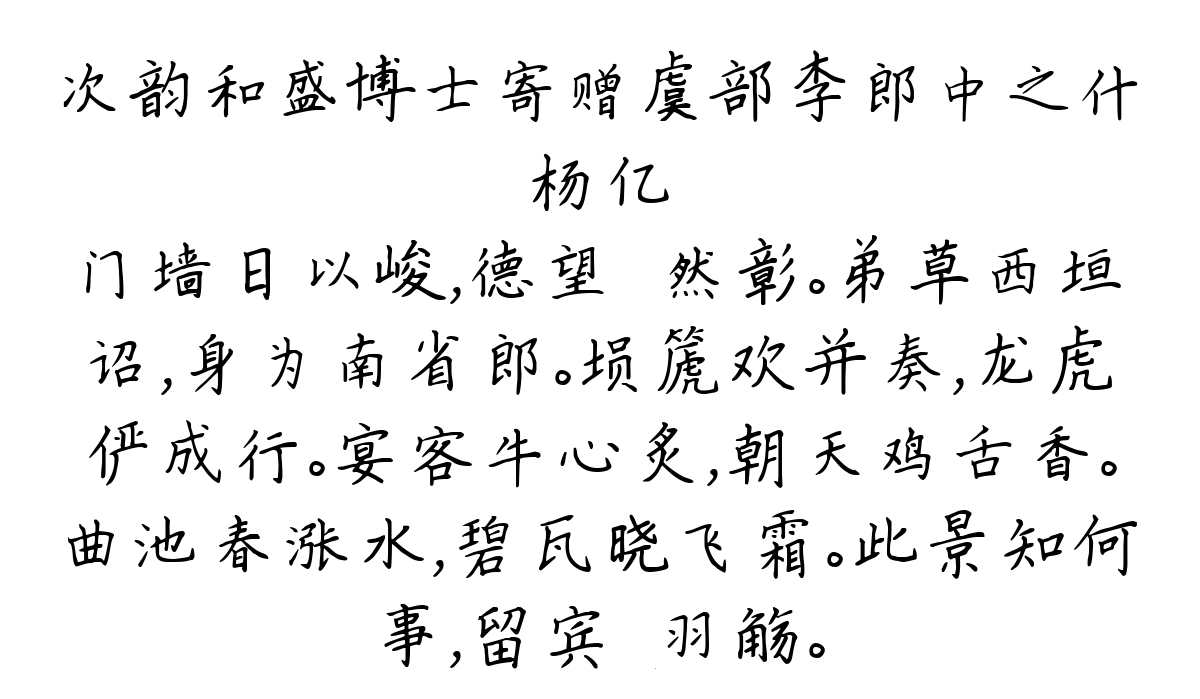 次韵和盛博士寄赠虞部李郎中之什
杨亿
门墙日以峻,德望 然彰。弟草西垣
诏,身为南省郎。埙篪欢并奏,龙虎
俨成行。宴客牛心炙,朝天鸡舌香。
曲池春涨水,碧瓦晓飞霜。此景知何
事,留宾 羽觞。